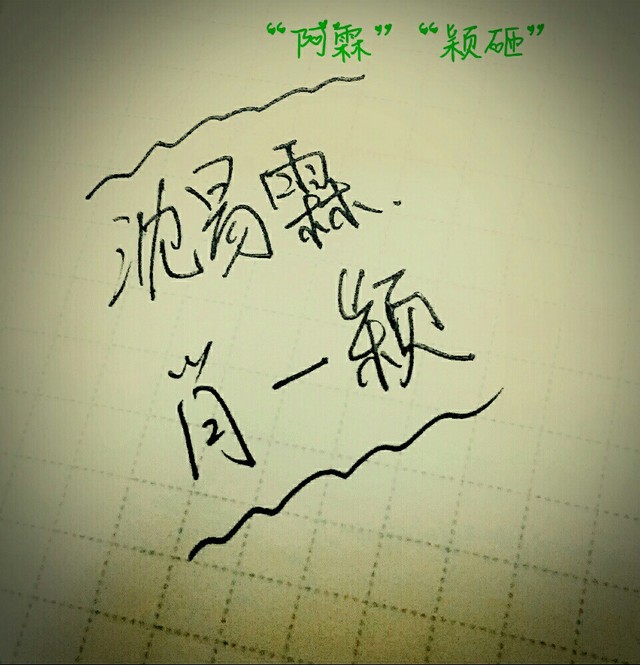 “阿霖” “颖砸”
沈易霖.
肖一颖